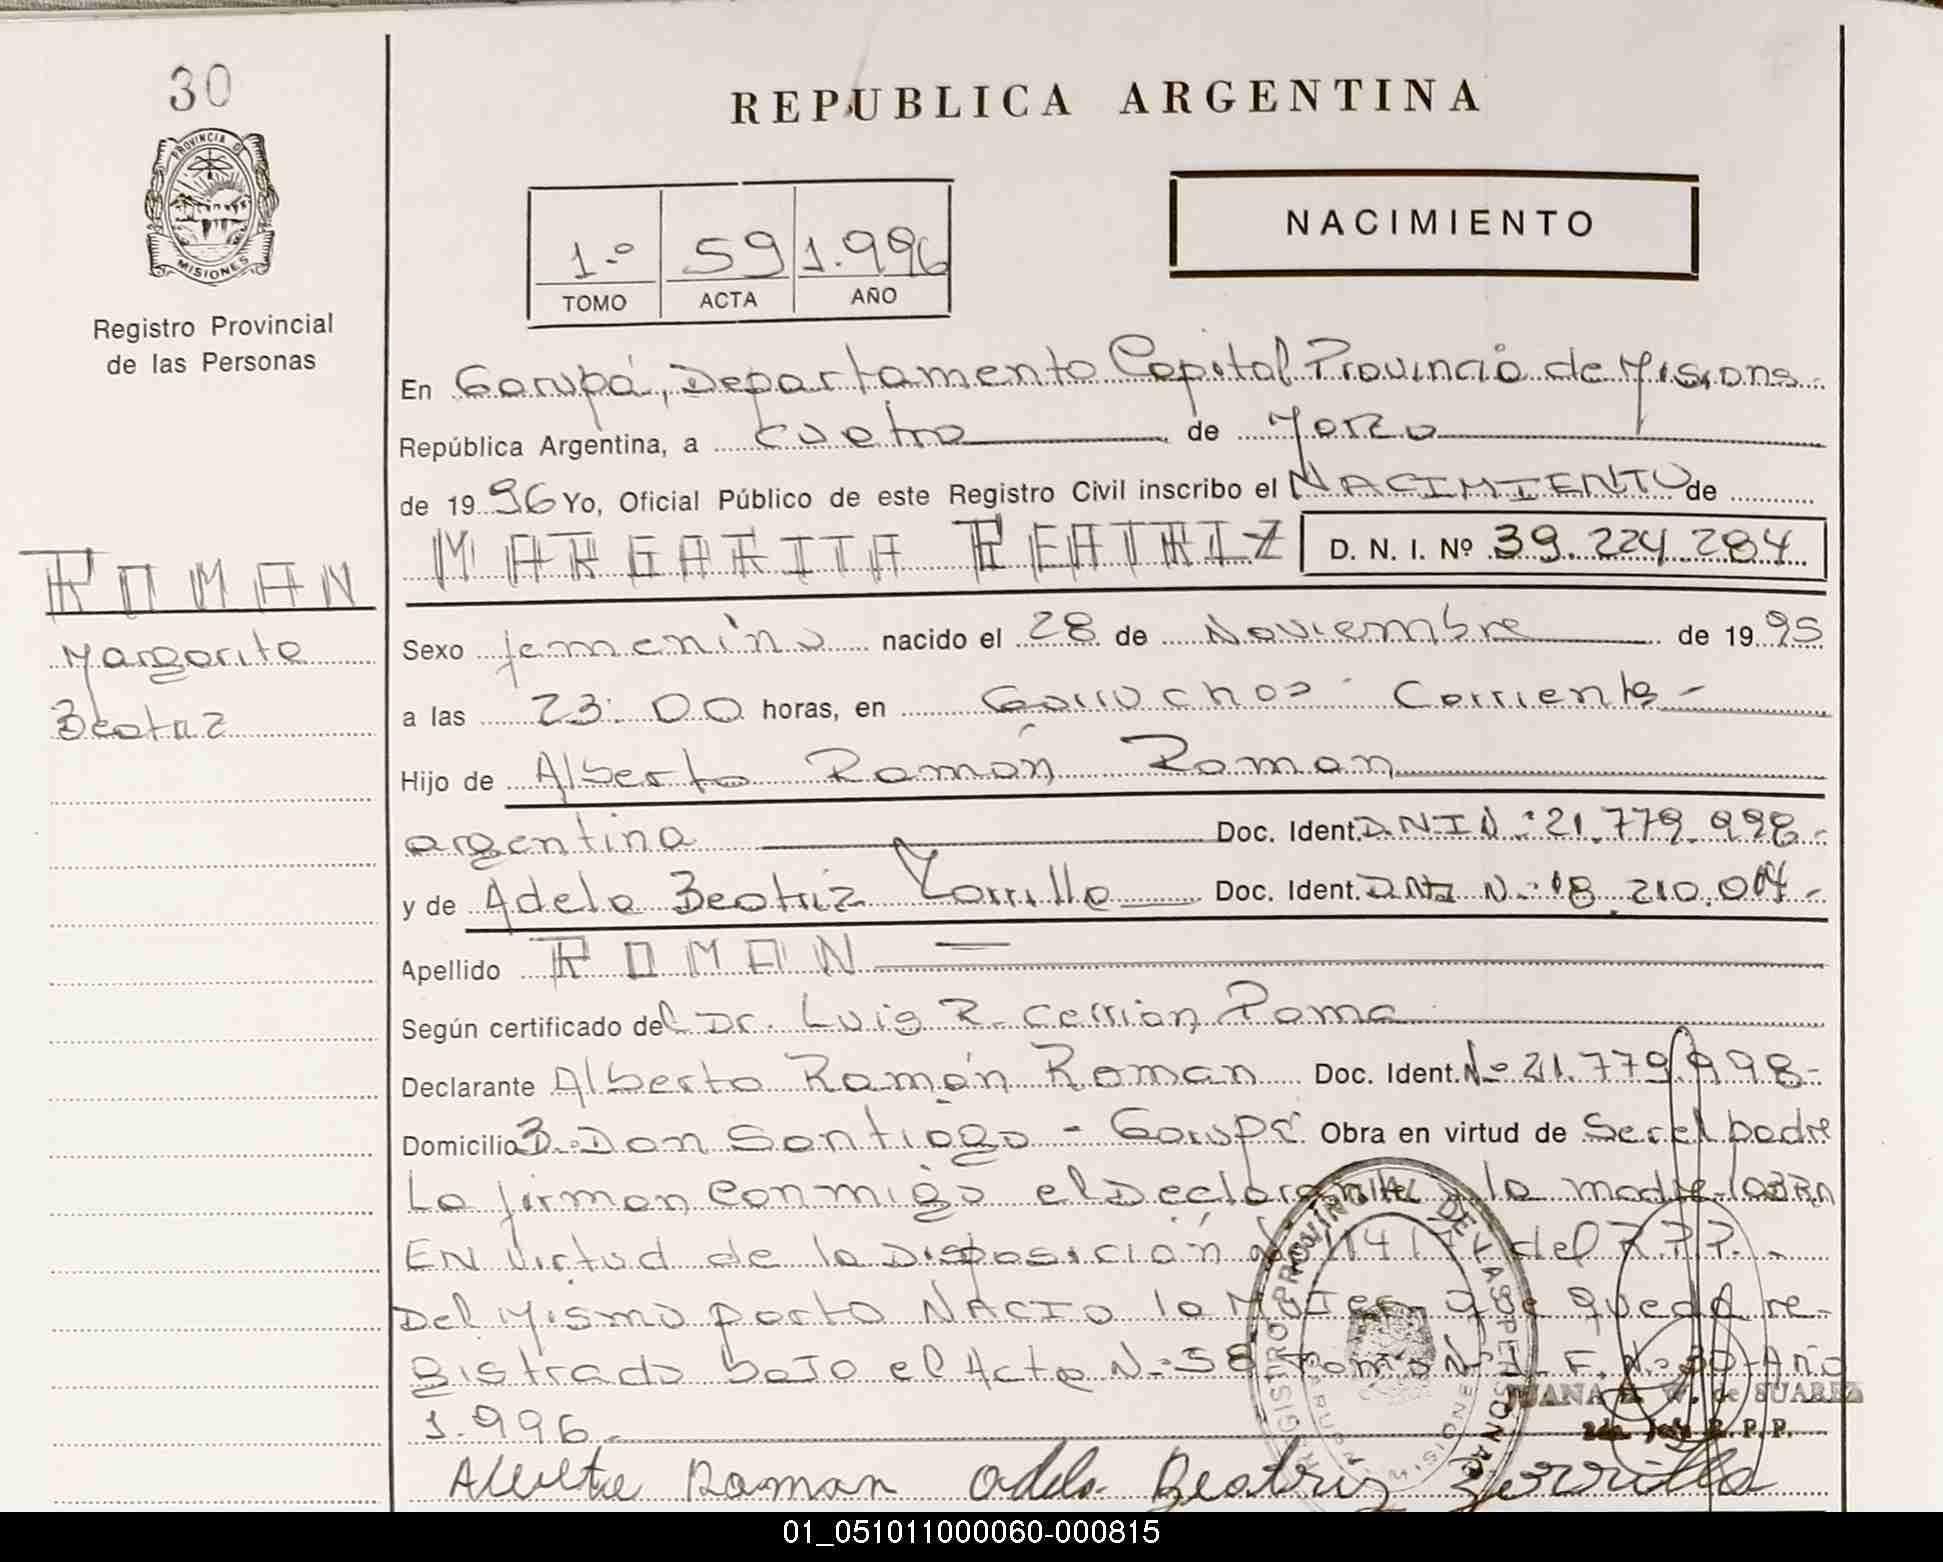 30
PROVINCIA DE
MISIONES
Registro Provincial
de las Personas
REPUBLICA ARGENTINA
NACIMIENTO
1.º 59 1.996
TOMO ACTA AÑO
En Garupá, Departamento Capital Provincia de Misions
República Argentina, a cuatro de Marzo
de 1996 Yo, Oficial Público de este Registro Civil inscribo el NACIMIENTO de
MARGARITA BEATRIZ D. N. I. Nº 39.224.284
ROMAN
Margarita
Beatriz
Sexo femenino nacido el 28 de Noviembre de 1995
a las 23:00 horas, en Garruchos Corrientes -
Hijo de Alberto Ramón Roman
argentina Doc. Ident. DNI N.º 21.779.998.-
y de Adela Beatriz Doc. Ident. DNI N.º 18.210.004.-
Apellido ROMAN =
Según certificado del Dr. Luis R. Carrion Poma
Declarante Alberto Ramón Roman Doc. Ident. Nº 21.779.998-
Domicilio B. Don Santiago - Garupá Obra en virtud de Ser el padre
La firman conmigo el Declarante y la madre - OBRA
EN virtud de la Disposición del
Del Mismo parto NACIO la que queda re-
gistrado bajo el Acta N.º 58 Tomo Nº 1 - F. N.º 30 - Año
1.996.
REGISTRO PROVINCIAL DE LAS PERSONAS
JUANA de SUAREZ
R.P.P.
Roman Adela Beatriz Zorrilla
01_051011000060-000815